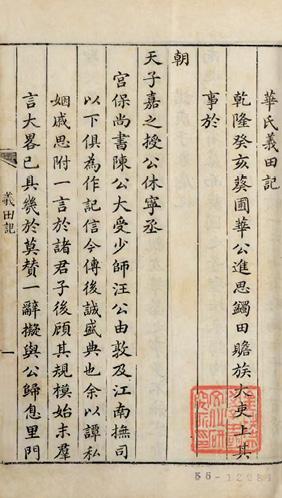 華氏義田記
乾隆癸亥葵圃華公進思蠲田贍族大吏上其
事於
朝
天子嘉之授公休寧丞
宮保尚書陳公大受少師汪公由敦及江南撫司
以下俱為作記信今傳後誠盛典也余以譚私
姻戚思附一言於諸君子後顧其規模始末羣
言大畧已具幾於莫贊一辭擬與公歸息里門
義田記
一